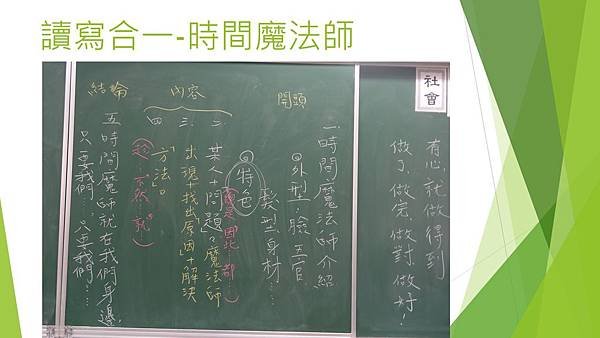 讀寫合一-時間魔法師
社會
有心,就做得到
做了、做完、做對、做好!
開頭
一、時間魔法師介紹
◎外型:臉、五官
髮型、身材……
◎特色
內容
二、
三、
四
某人+問題?魔法師
出現+找出「原因」+解決
「方法」。
結論
五時間魔師就在我們身邊,
只要我們…,只要我們……